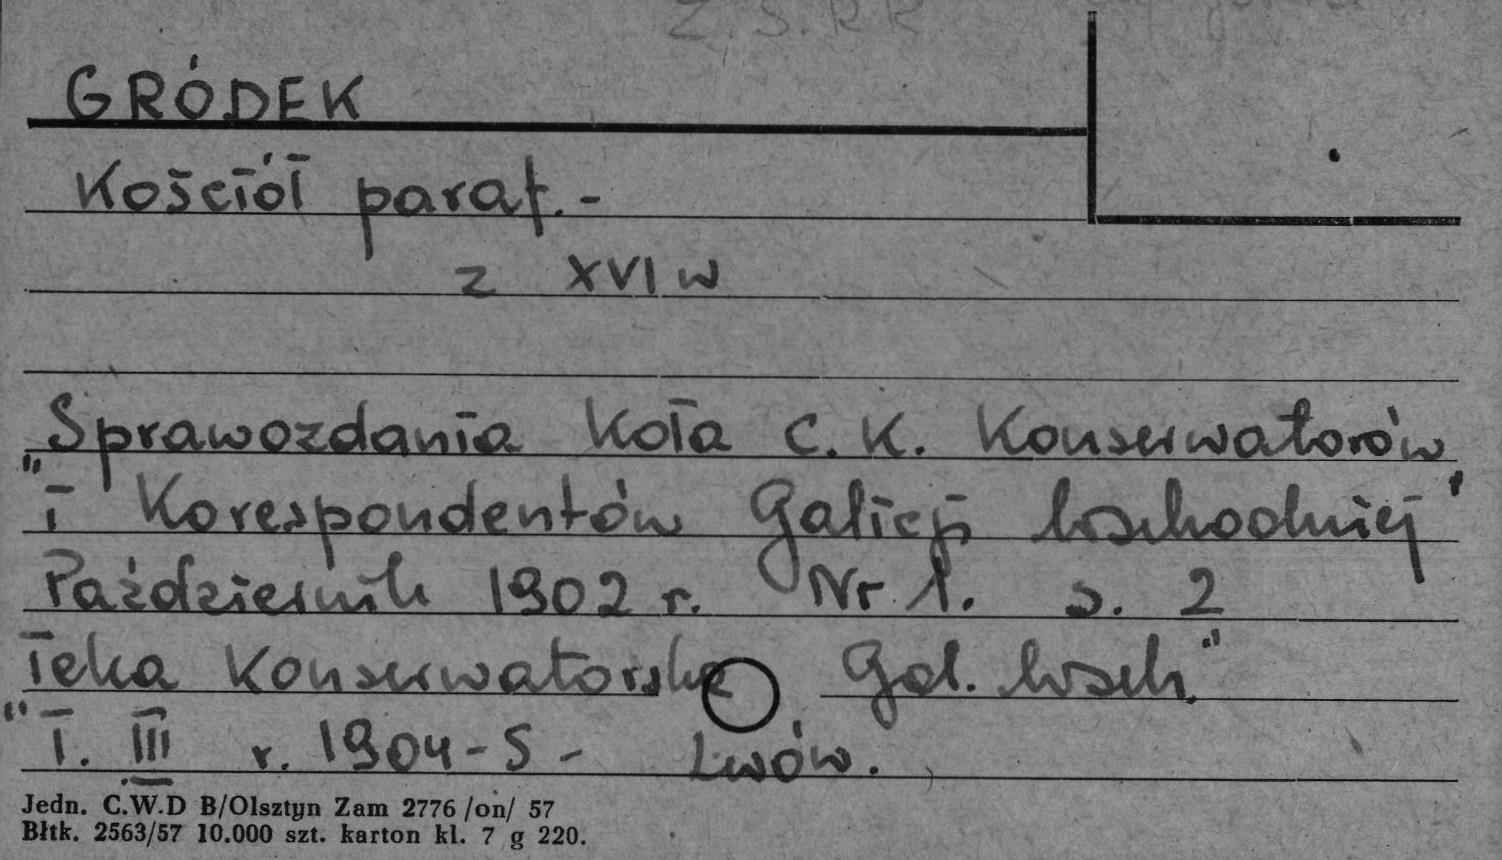 Z.S.R.R
GRÓDEK
Kościół paraf.-
z XVI w
Sprawozdania Koła C.K. Konserwatorów
"i Korespondentów Galicji Wschodniej"
Październik 1902 r. Nr 1. s. 2
Teka Konserwatorska Gal. Wsch."
"T. III r. 1904-5 - Lwów.
Jedn. C.W.D B/Olsztyn Zam 2776 /on/ 57
Błtk. 2563/57 10.000 szt. karton kl. 7 g 220.